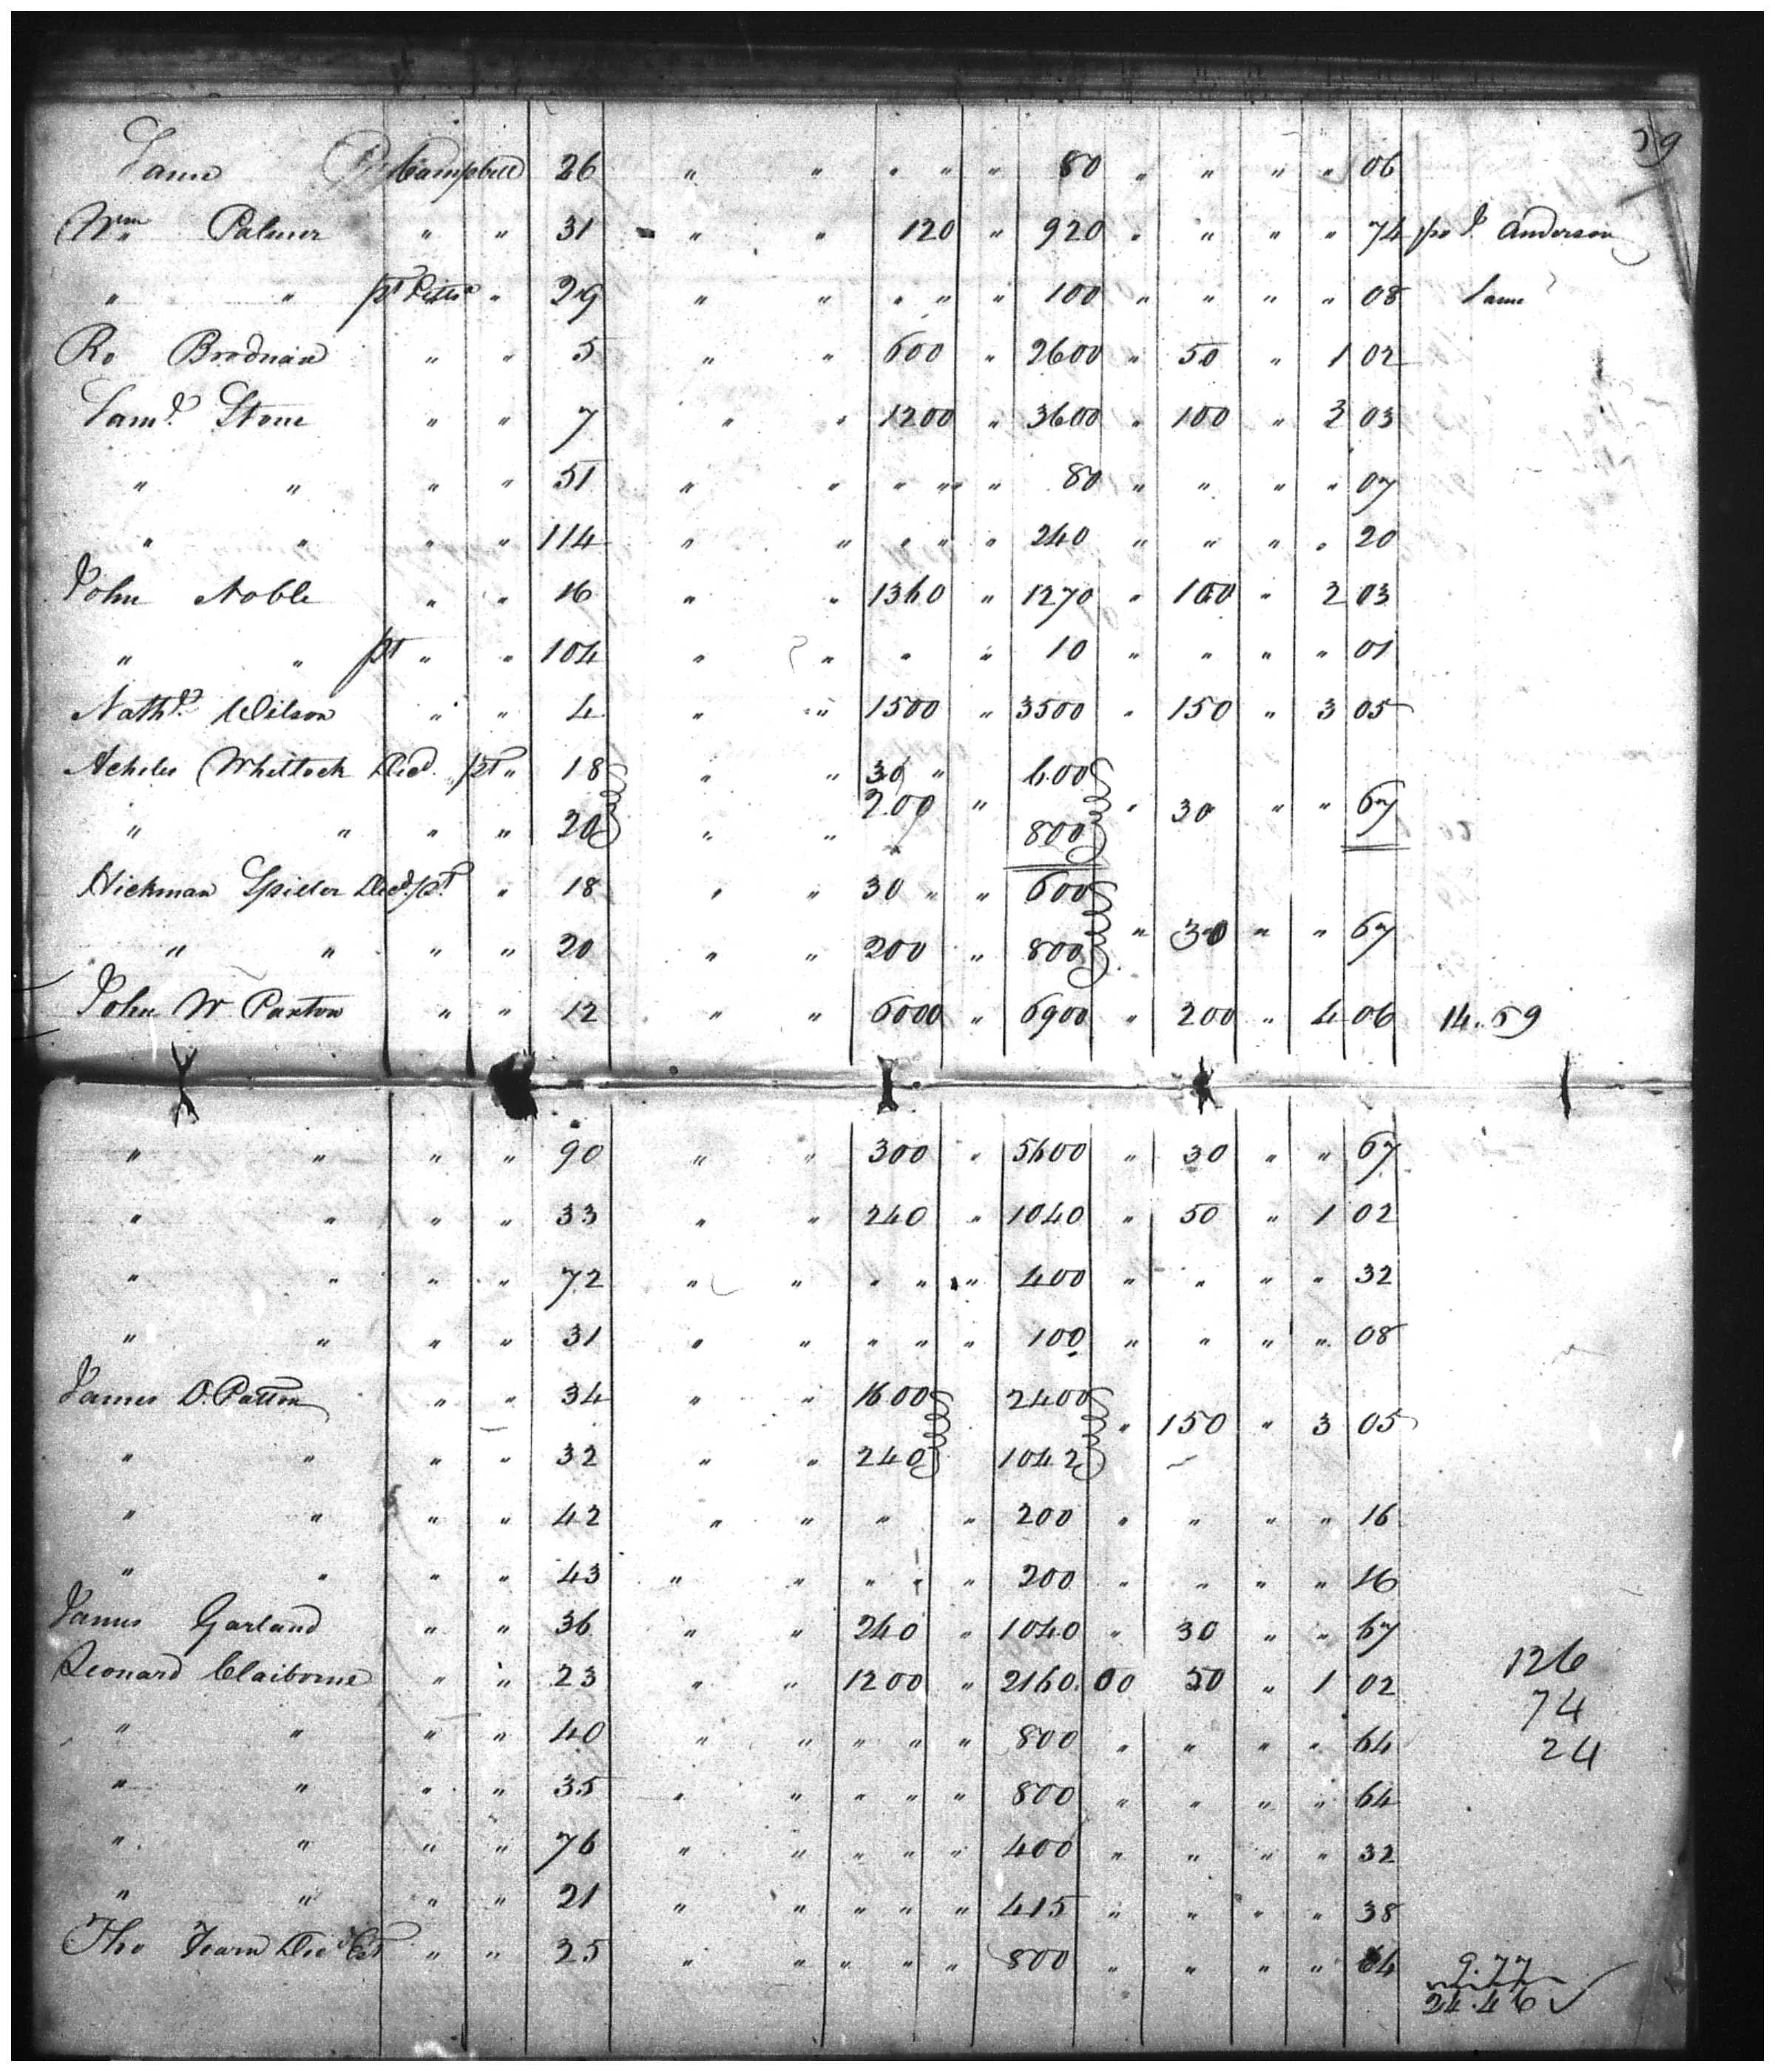 59
Same Campbell 26 " " " " " 80 " " " " 06
Wm Palmer " " 31 " " 120 " 920 " " " " 74 pr J. Anderson
" " pt " 29 " " " " " 100 " " " " 08 Same
Ro Brodnax " " 5 " " 600 " 2600 " 50 " 1 02
Saml Stone " " 7 " " 1200 " 3600 " 100 " 2 03
" " " " 51 " " " " " 80 " " " " 07
" " " " 114 " " " " " 240 " " " " 20
John Noble " " 16 " " 1360 " 1270 " 100 " 2 03
" " pt " " 104 " " " " 10 " " " " 01
Nathl Wilson " " 4 " " 1500 " 3500 " 150 " 3 05
Achiles Whitlock Decd pt " 18 " " 30 " 600
" " " " 20 " " 200 " 800 " 30 " " 67
Hickman Spiller Decd pt " 18 " " 30 " " 600
" " " " 20 " " 200 " 800 " 30 " " 67
John W Paxton " " 12 " " 6000 " 6900 " 200 " 4 06 14. 69
" " " " 90 " " 300 " 5600 " 30 " " 67
" " " " 33 " " 240 " 1040 " 50 " 1 02
" " " " 72 " " " " " 400 " " " " 32
" " " " 31 " " " " " 100 " " " " 08
James D. Patton " " 34 " " 1600 2400
" " " " 32 " " 240 1042 " 150 " 3 05
" " " " 42 " " " " 200 " " " " 16
" " " " 43 " " " " " 200 " " " " 16
James Garland " " 36 " " 240 " 1040 " 30 " " 67
Leonard Claiborne " " 23 " " 1200 " 2160 00 50 " 1 02
126
" " " " 40 " " " " " 800 " " " " 64
74
24
" " " " 35 " " " " " 800 " " " " 64
" " " " 76 " " " " " 400 " " " " 32
" " " " 21 " " " " " 415 " " " " 38
Tho Fearn Decd Est " " 25 " " " " " 800 " " " " 64
9.77
24.46